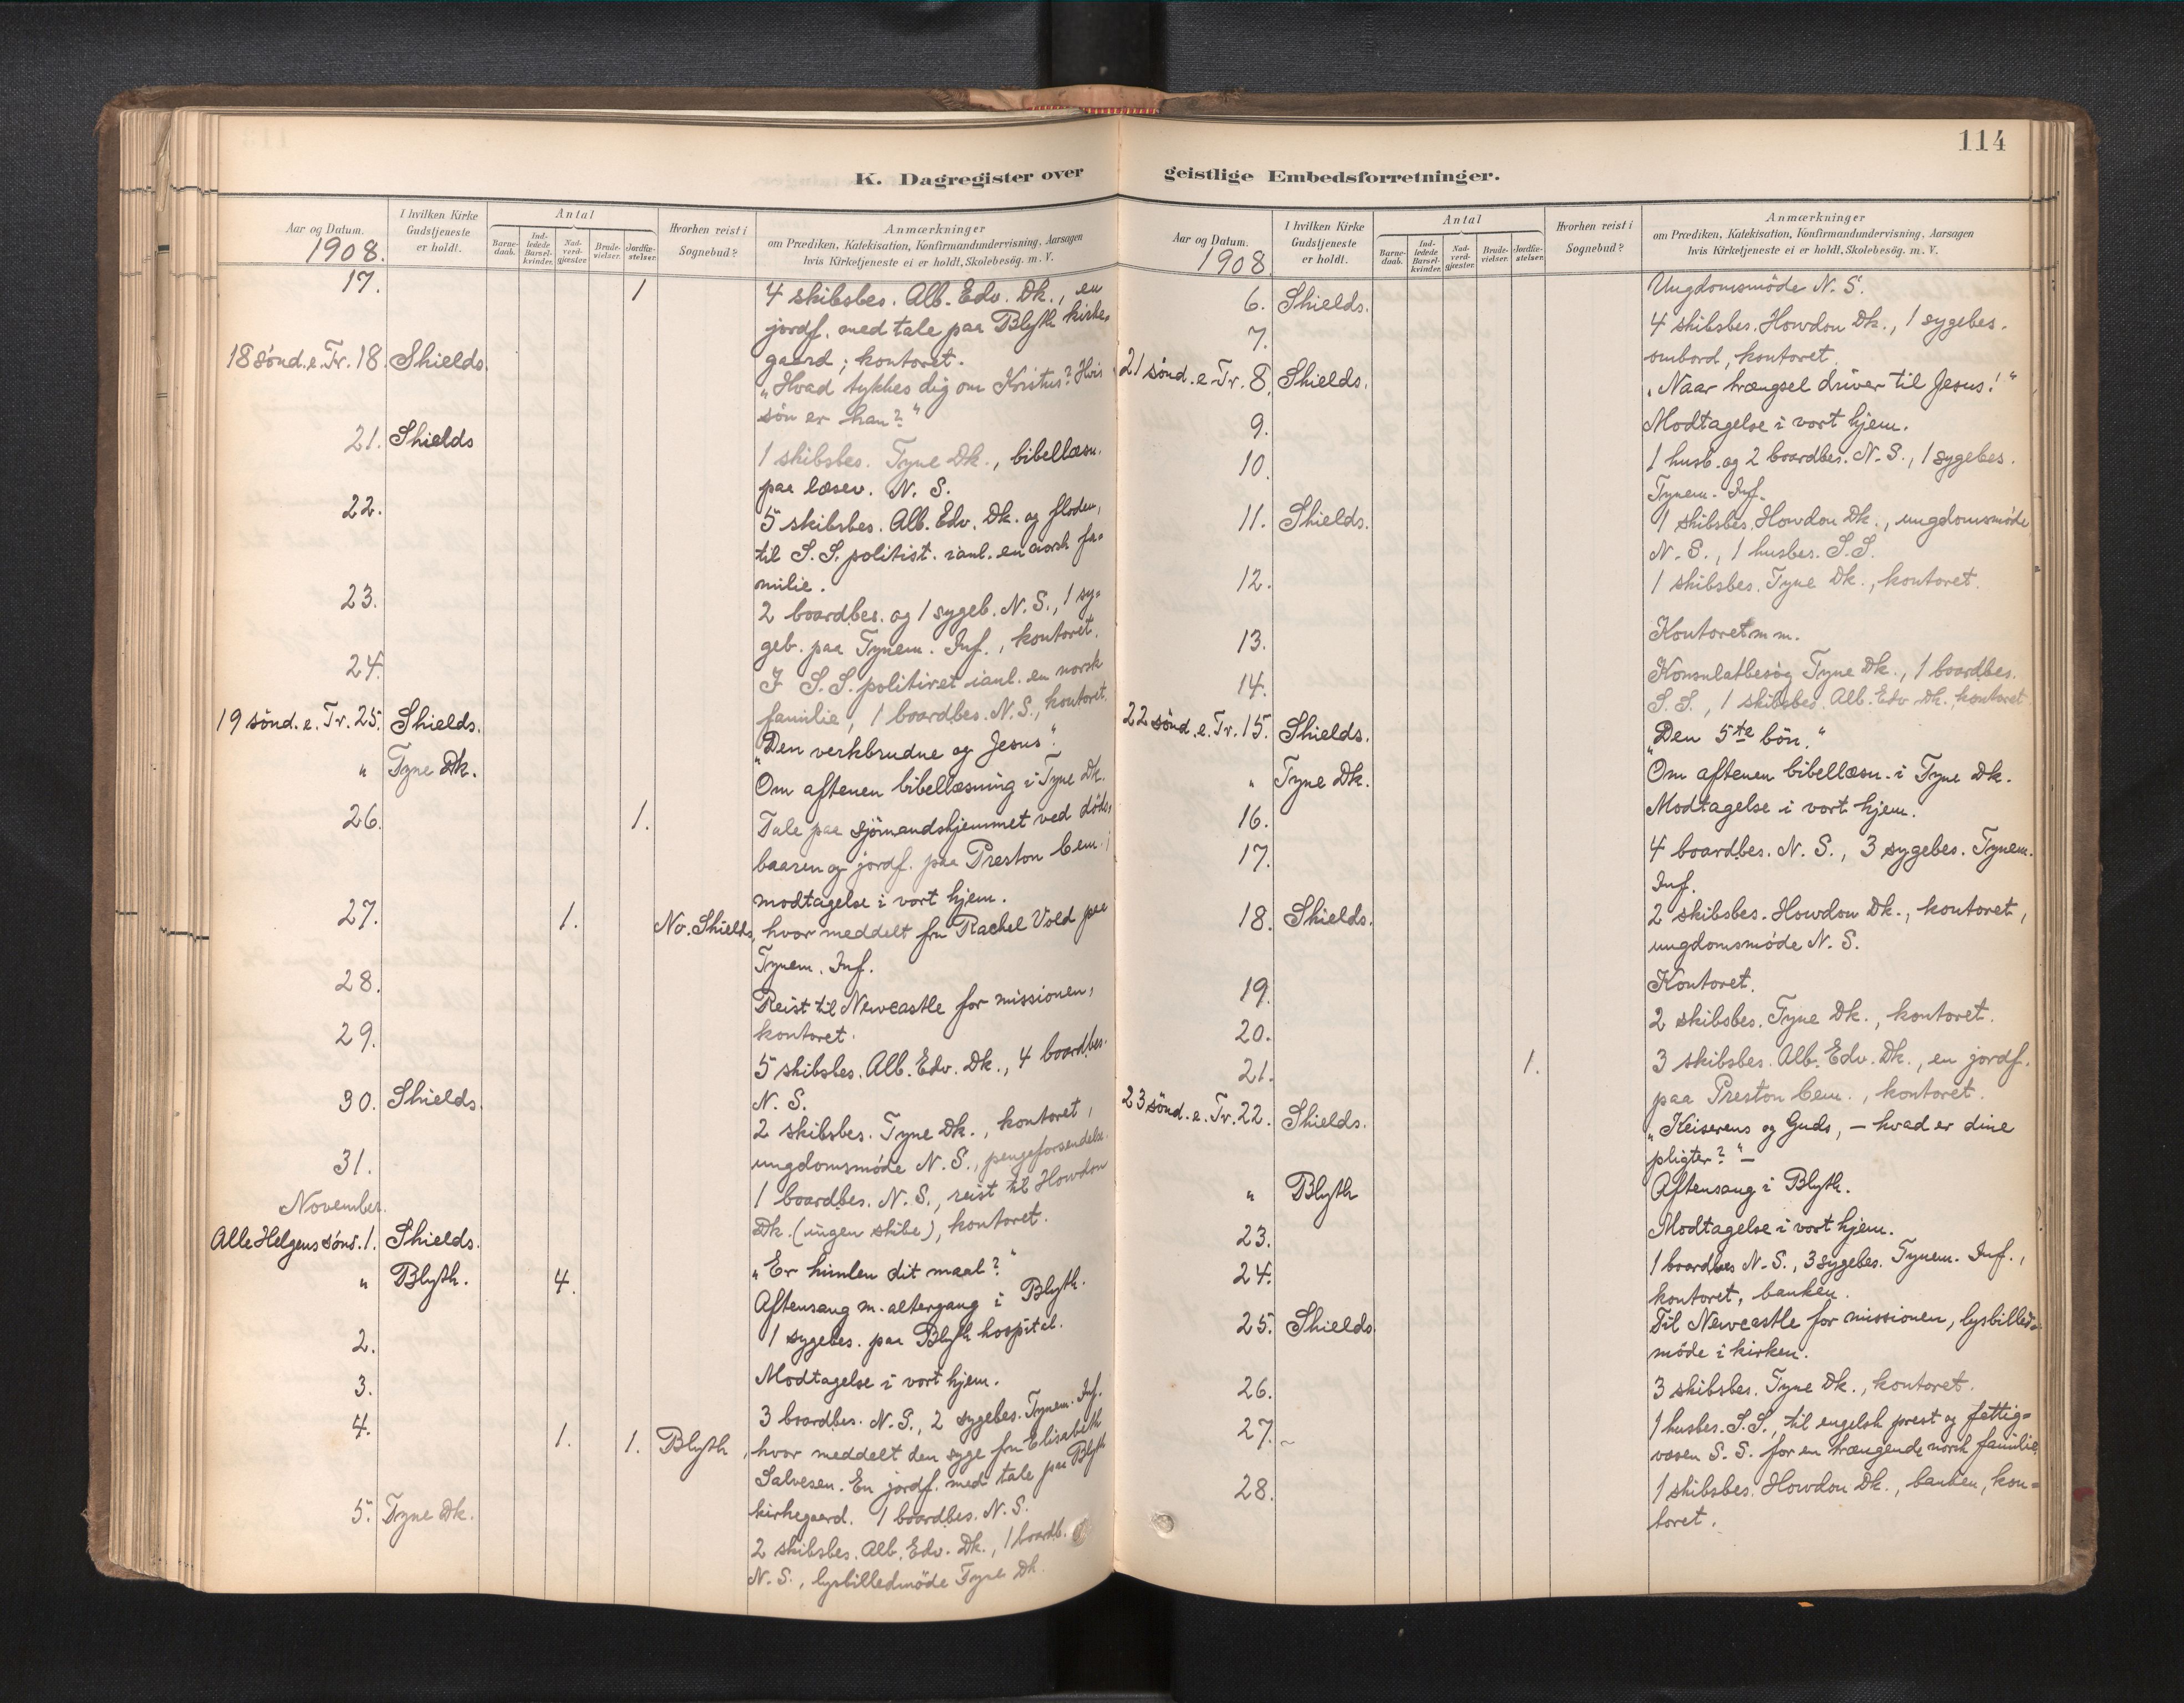 114
K. Dagregister over
Aar og Datum.
1908.
I hvilken Kirke
Gudstjeneste
er holdt.
Antal
Barne-
daab.
Ind-
ledede
Barsel-
kvinder.
Nad-
verd-
gjæster.
Brude-
vielser.
Jordfæ-
stelser.
Hvorhen reist i
Sognebud?
Anmærkninger
om Prædiken, Katekisation, Konfirmandundervisning, Aarsagen
hvis Kirketjeneste ei er holdt, Skolebesög. m. V.
17. 1 4 skibsbes. Alb. Edv. Dk., en
jordf. med tale paa Blyth kirke-
gaard; kontoret.
18 sönd. e. Tr. 18. Shields. „Hvad tykkes dig om Kristus? Hvis
sön er han?"
21. Shields 1 skibsbes. Tyne Dk., bibellæsn.
paa læsev. N. S.
22. 5 skibsbes. Alb. Edv. Dk. og floden,
til S. S. politist. ianl. en norsk fa-
milie.
23. 2 boardbes. og 1 sygeb. N. S., 1 sy-
geb. paa Tynem. Inf., kontoret.
24. I S. S. politiret ianl. en norsk
familie, 1 boardbes. N. S., kontoret.
19 sönd. e. Tr. 25. Shields. „Den verkbrudne og Jesus".
" Tyne Dk. Om aftenen bibellæsning i Tyne Dk.
26. 1. Tale paa sjömandshjemmet ved döds-
baaren og jordf. paa Preston Cem.;
modtagelse i vort hjem.
27. 1. No. Shields, hvor meddelt fru Rachel Vold paa
Tynem. Inf.
28. Reist til Newcastle for missionen,
kontoret.
29. 5 skibsbes. Alb. Edv. Dk., 4 boardbes.
N. S.
30. Shields. 2 skibsbes. Tyne Dk., kontoret,
ungdomsmöde N. S., pengeforsendelse.
31. 1 boardbes. N. S., reist til Howdon
Dk. (ingen skibe), kontoret.
November.
Alle Helgens sönd. 1. Shields. „Er himlen dit maal?"
" Blyth. 4. Aftensang m. altergang i Blyth.
1 sygebes. paa Blyth hospital.
2. Modtagelse i vort hjem.
3. 3 boardbes. N. S., 2 sygebes. Tynem. Inf.
4. 1. 1. Blyth, hvor meddelt den syge fru Elisabeth
Salvesen. En jordf. med tale paa Blyth
kirkegaard. 1 boardbes. N. S.
5. Tyne Dk. 2 skibsbes. Alb. Edv. Dk., 1 boardb.
N. S., lysbilledmöde Tyne Dk.
geistlige Embedsforretninger.
Aar og Datum.
1908.
I hvilken Kirke
Gudstjeneste
er holdt.
Antal
Barne-
daab.
Ind-
ledede
Barsel-
kvinder.
Nad-
verd-
gjæster.
Brude-
vielser.
Jordfæ-
stelser.
Hvorhen reist i
Sognebud?
Anmærkninger
om Prædiken, Katekisation, Konfirmandundervisning, Aarsagen
hvis Kirketjeneste ei er holdt, Skolebesög. m. V.
6. Shields. Ungdomsmöde N. S.
7. 4 skibsbes. Howdon Dk., 1 sygebes.
ombord, kontoret.
21 sönd. e. Tr. 8. Shields. „Naar trængsel driver til Jesus!"
9. Modtagelse i vort hjem.
10. 1 husb. og 2 boardbes. N. S., 1 sygebes.
Tynem. Inf.
11. Shields. 1 skibsbes. Howdon Dk., ungdomsmöde
N. S., 1 husbes. S. S.
12. 1 skibsbes. Tyne Dk., kontoret.
13. Kontoret m m.
14. Konsulatbesög Tyne Dk., 1 boardbes.
S. S., 1 skibsbes. Alb. Edv. Dk. kontoret
22 sönd. e. Tr. 15. Shields. „Den 5te bön."
" Tyne Dk. Om aftenen bibellæsn. i Tyne Dk.
16. Modtagelse i vort hjem.
17. 4 boardbes. N. S., 3 sygebes. Tynem.
Inf.
18. Shields. 2 skibsbes. Howdon Dk., kontoret,
ungdomsmöde N. S.
19. Kontoret.
20. 2 skibsbes. Tyne Dk., kontoret.
21. 1. 3 skibsbes. Alb. Edv. Dk., en jordf.
paa Preston Cem., kontoret.
23 sönd. e. Tr. 22. Shields. „Keiserens og Guds, – hvad er dine
pligter?" –
" Blyth Aftensang i Blyth.
23. Modtagelse i vort hjem.
24. 1 boardbes N. S., 3 sygebes. Tynem. Inf.,
kontoret, banken.
25. Shields. Til Newcastle for missionen, lysbilled-
möde i kirken.
26. 3 skibsbes. Tyne Dk., kontoret.
27. ~ 1 husbes. S. S., til engelsk prest og fattig-
væsen S. S. for en trængende norsk familie.
28. 1 skibsbes. Howdon Dk., banken, kon-
toret.